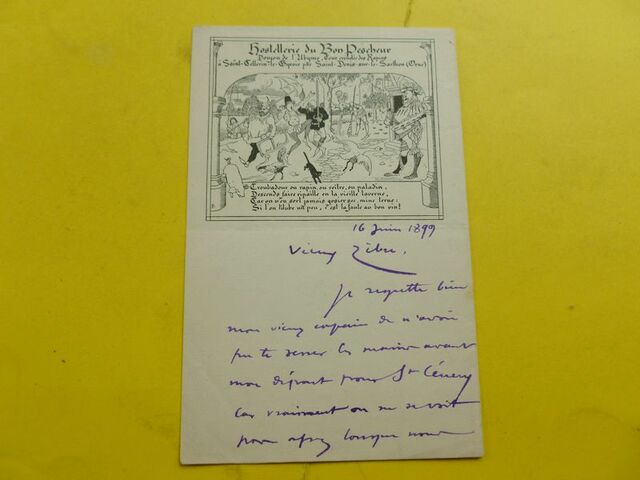 Hostellerie du Bon Pescheur
Donjon de l'Abyme, Tour crénelée des Rapins
à Saint-Cellerin-le-Gyrois près Saint-Denys-sur-le-Sarthon (Orne)
Troubadour ou rapin, ou reitre, ou paladin,
Descends faire ripaille en la vieille taverne,
Car on n'en sort jamais gosier sec, mine terne:
Si l'on titube un peu, c'est la faute au bon vin!
16 Juin 1899
Vieux Zibu.
Je regrette bien
mon vieux copain de n'avoir
pu te serrer les mains avant
mon départ pour St Cénery
car vraiment on ne se voit
pas assez lorsque nous